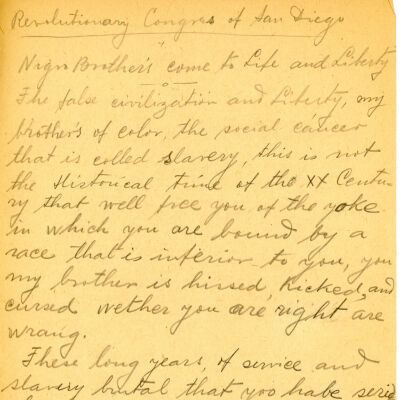 Revolutionary Congres of San Diego
Nigro Brother's come to Life and Liberty
The false civilization and Liberty, my
brother's of color, the social cancer
that is colled slavery, this is not
the Historical time of the XX Centu-
ry that well free you of the yoke
in which you are bound by a
race that is inferior to you, you
my brother is hissed, kicked, and
cursed wether you are right are
wrong.
These long years, of service and
slavery brutal that yoo habe